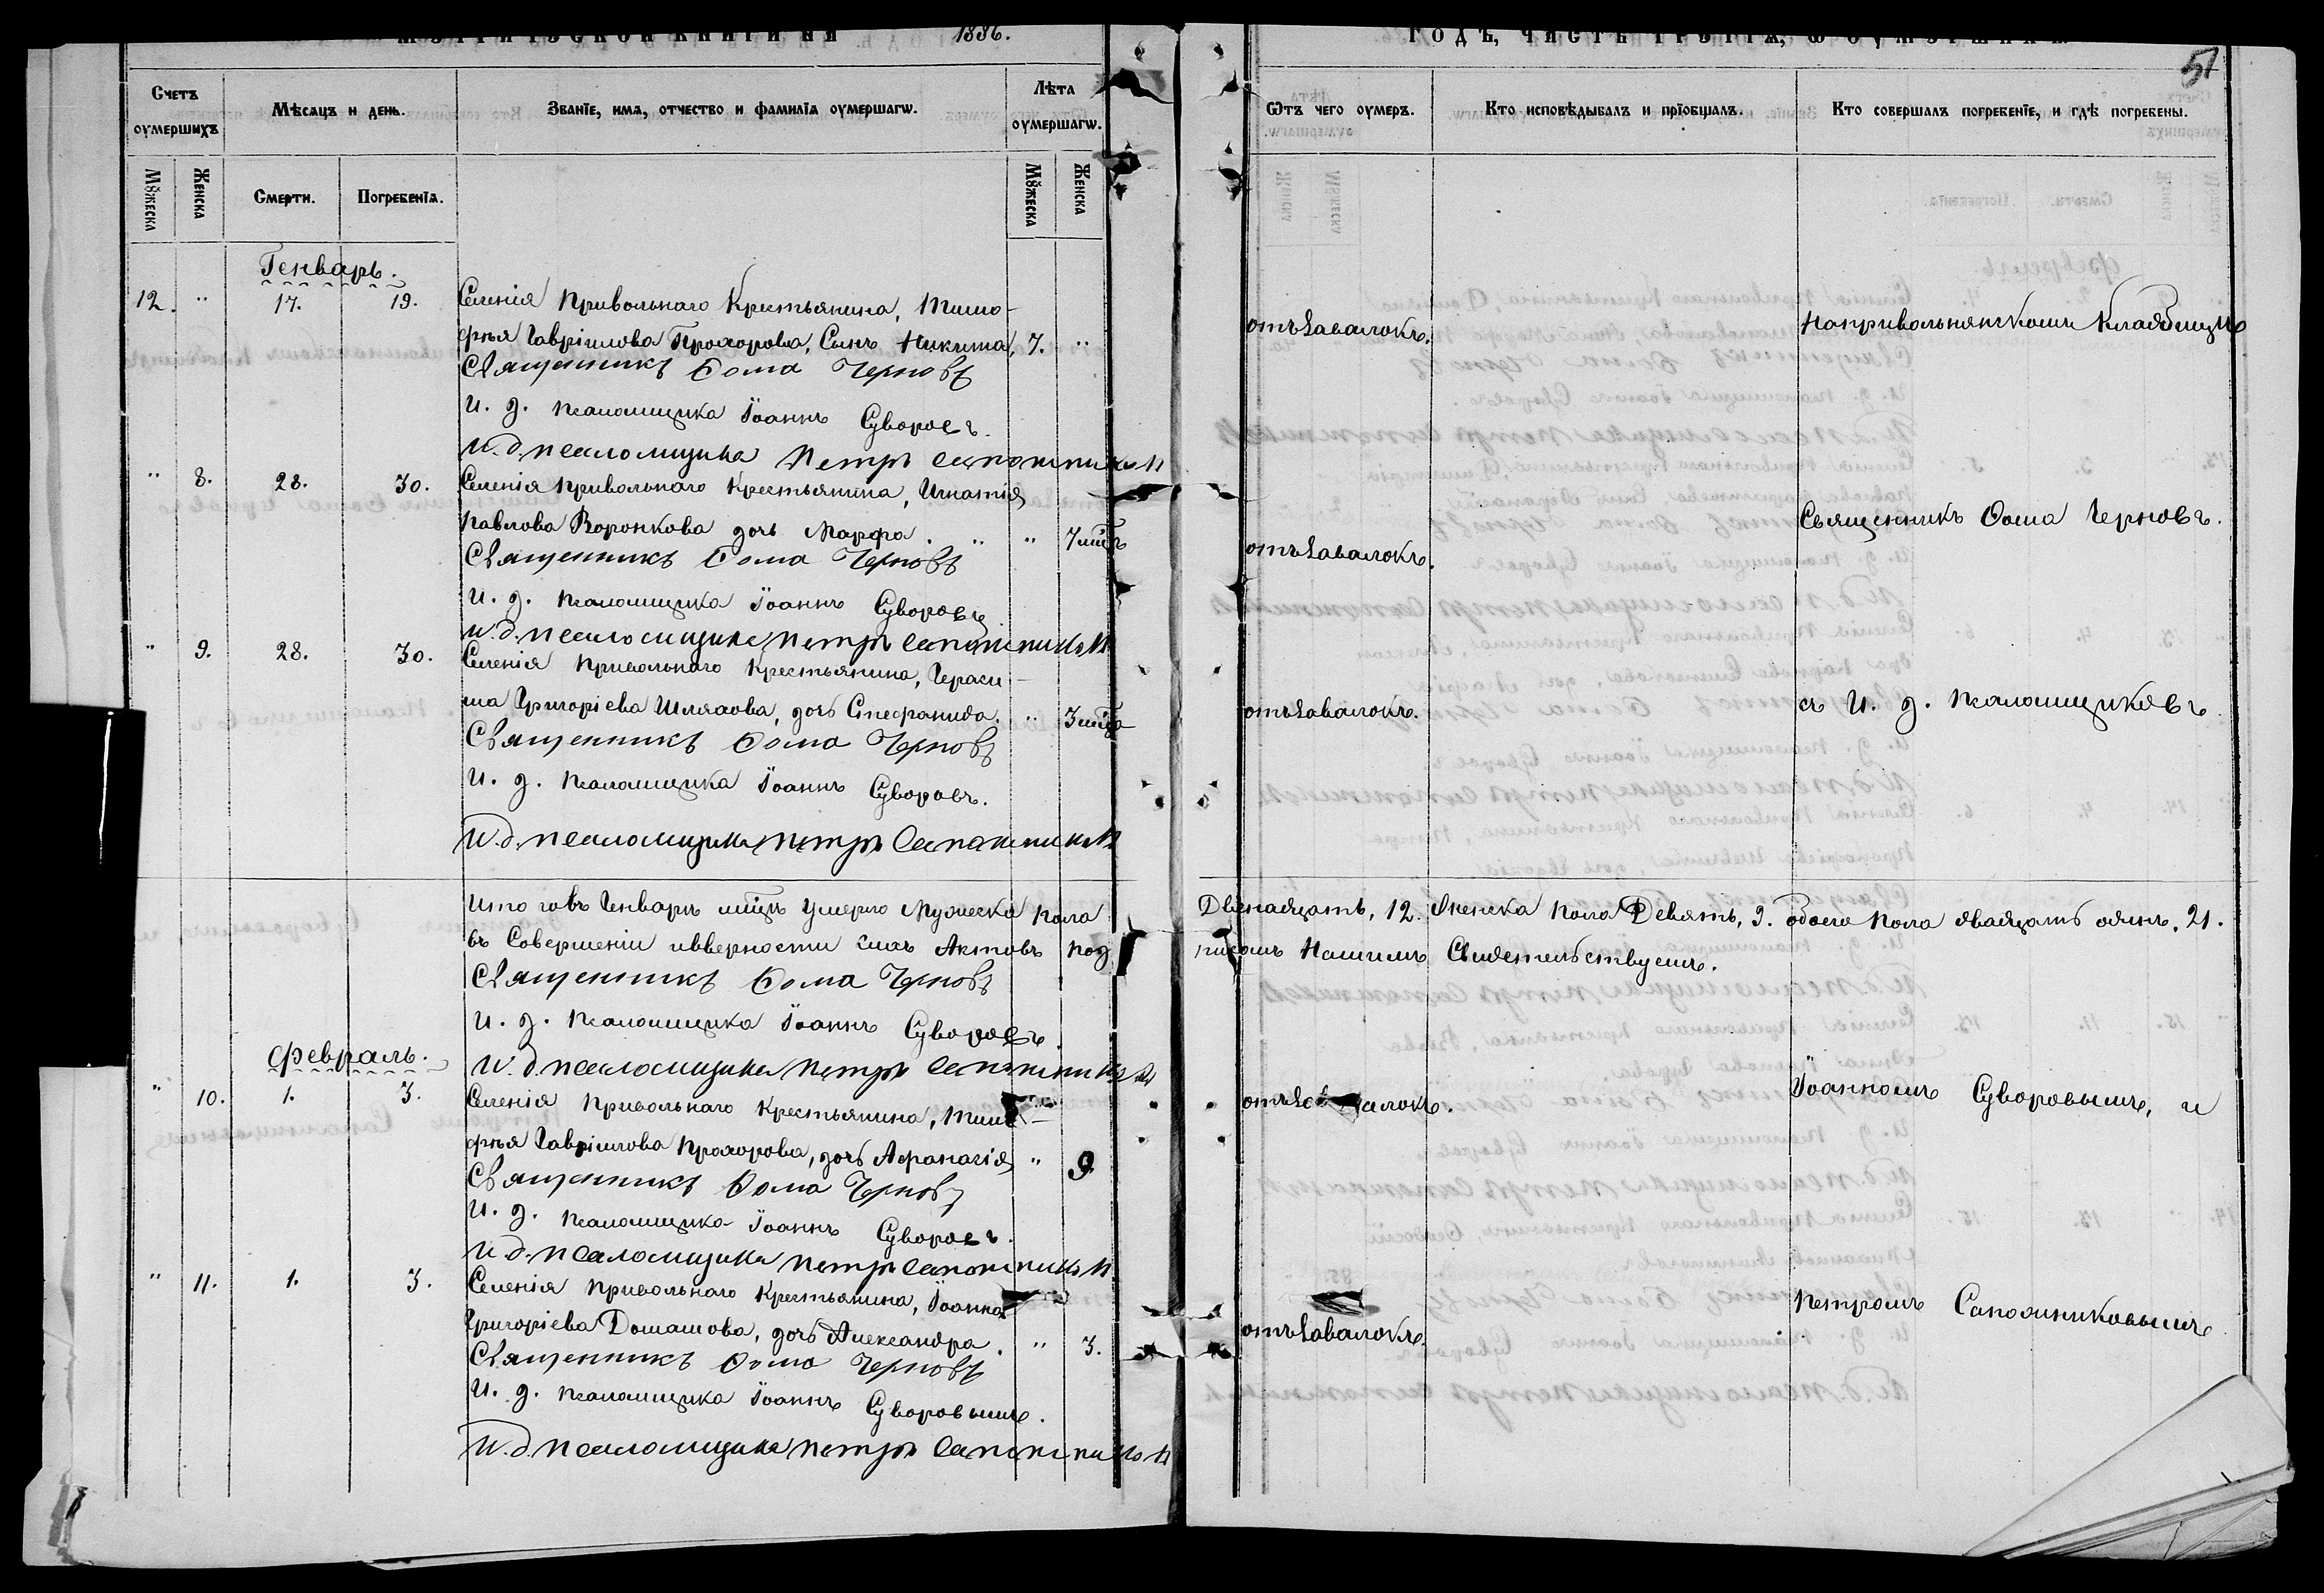 1886.
51
Счетъ оумершихъ
Мѣсяцъ и день.
Званїе, имя, отчество и фамилїя оумершагѡ.
Лѣта оумершагѡ.
Ѿтъ чего оумеръ.
Кто исповѣдывалъ и прїобщалъ.
Кто совершалъ погребенїе, и гдѣ погребены.
Мꙋжеска
Женска
Смерти.
Погребенїя.
Мꙋжеска
Женска
Генварь.
12. " 17. 19. Селенія Привольнаго Крестьянина, Тимо-
фея Гавріилова Прохорова, Сынъ Никита, 7. "
отъ Забалокъ.
На привольнянскомъ Кладбищѣ
Священникъ Ѳома Черновъ
И. д. псаломщика Іоаннъ Суворовъ.
И. д. псаломщика Петръ Сапожников
" 8. 28. 30. Селенія Привольнаго Крестьянина, Игнатія
Павлова Воронкова дочь Марфа. " " 7 мѣц
отъ Забалокъ.
Священникъ Ѳома Черновъ.
Священникъ Ѳома Черновъ
И. д. псаломщика Іоаннъ Суворовъ
И. д. псаломщика Петръ Сапожников
" 9. 28. 30. Селенія Привольнаго Крестьянина, Гераси-
ма Григоріева Шляхова, дочь Стефанида. " 3 мѣца
отъ Забалокъ.
съ И. д. псаломщиковъ
Священникъ Ѳома Черновъ
И. д. псаломщика Іоаннъ Суворовъ.
И. д. псаломщика Петръ Сапожников
Итого въ Генварѣ мѣцѣ Умерло Мужеска пола Двенадцать, 12. Женска пола Девять, 9. обоего пола двадцать одинъ, 21.
въ Совершеніи и вѣрности сихъ Актовъ под писомъ Нашимъ Свидетельствуемъ.
Священникъ Ѳома Черновъ
И. д. псаломщика Іоаннъ Суворовъ.
И. д. псаломщика Петръ Сапожников
Февраль.
" 10. 1. 3. Селенія Привольнаго Крестьянина, Тимо-
фея Гавріилова Прохорова, дочь Афанасія " 9
отъ Забалокъ.
Іоанномъ Суворовымъ, и
Священникъ Ѳома Черновъ
И. д. псаломщика Іоаннъ Суворовъ.
И. д. псаломщика Петръ Сапожников
" 11. 1. 3. Селенія Привольнаго Крестьянина, Іоанна
Григоріева Домашова, дочь Александра. " 3.
отъ Забалокъ.
Петромъ Сапожниковымъ
Священникъ Ѳома Черновъ
И. д. псаломщика Іоаннъ Суворовымъ.
И. д. псаломщика Петръ Сапожников